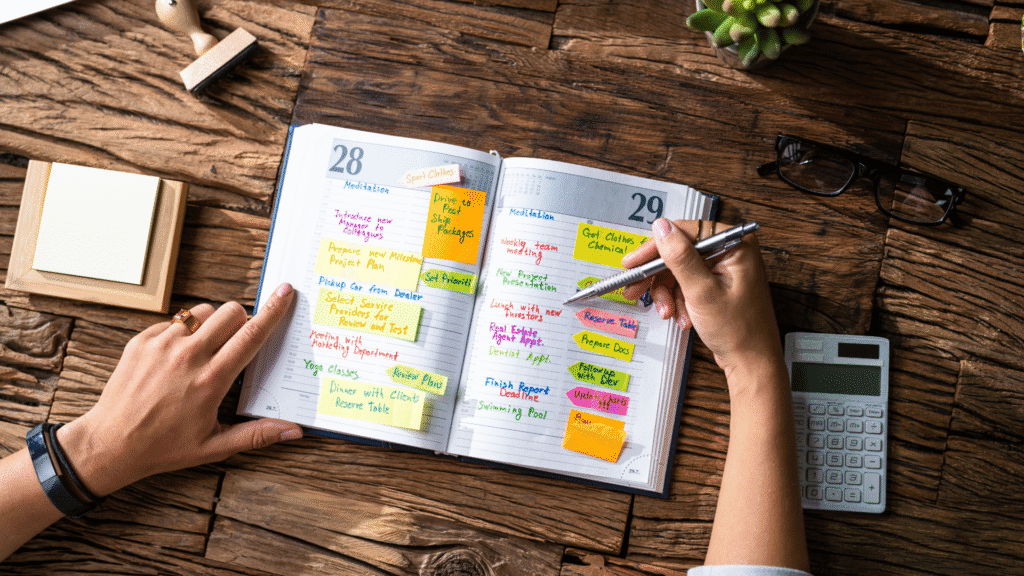 28
Sport Clothes
Meditation
Drive to
Post
Ship
Packages
Introduce new
Manager to
Colleagues
Prepare new Milestone
Project Plan
Set Priorit
Pickup Car from Dealer
Select Service
Providers for
Review and Test
Meeting with
Marketing Department
Review Plans
Yoga Classes
Dinner with Clients
Reserve Table
29
Meditation
Get Clothes
Chemical
Weekly team
meeting
New Project
Presentation
Lunch with new
Investors
Reserve Table
Real Estate
Agent Appt.
Prepare Docs
Dentist Appt.
Followup
with Dev
Finish Report
Deadline
Swimming Pool